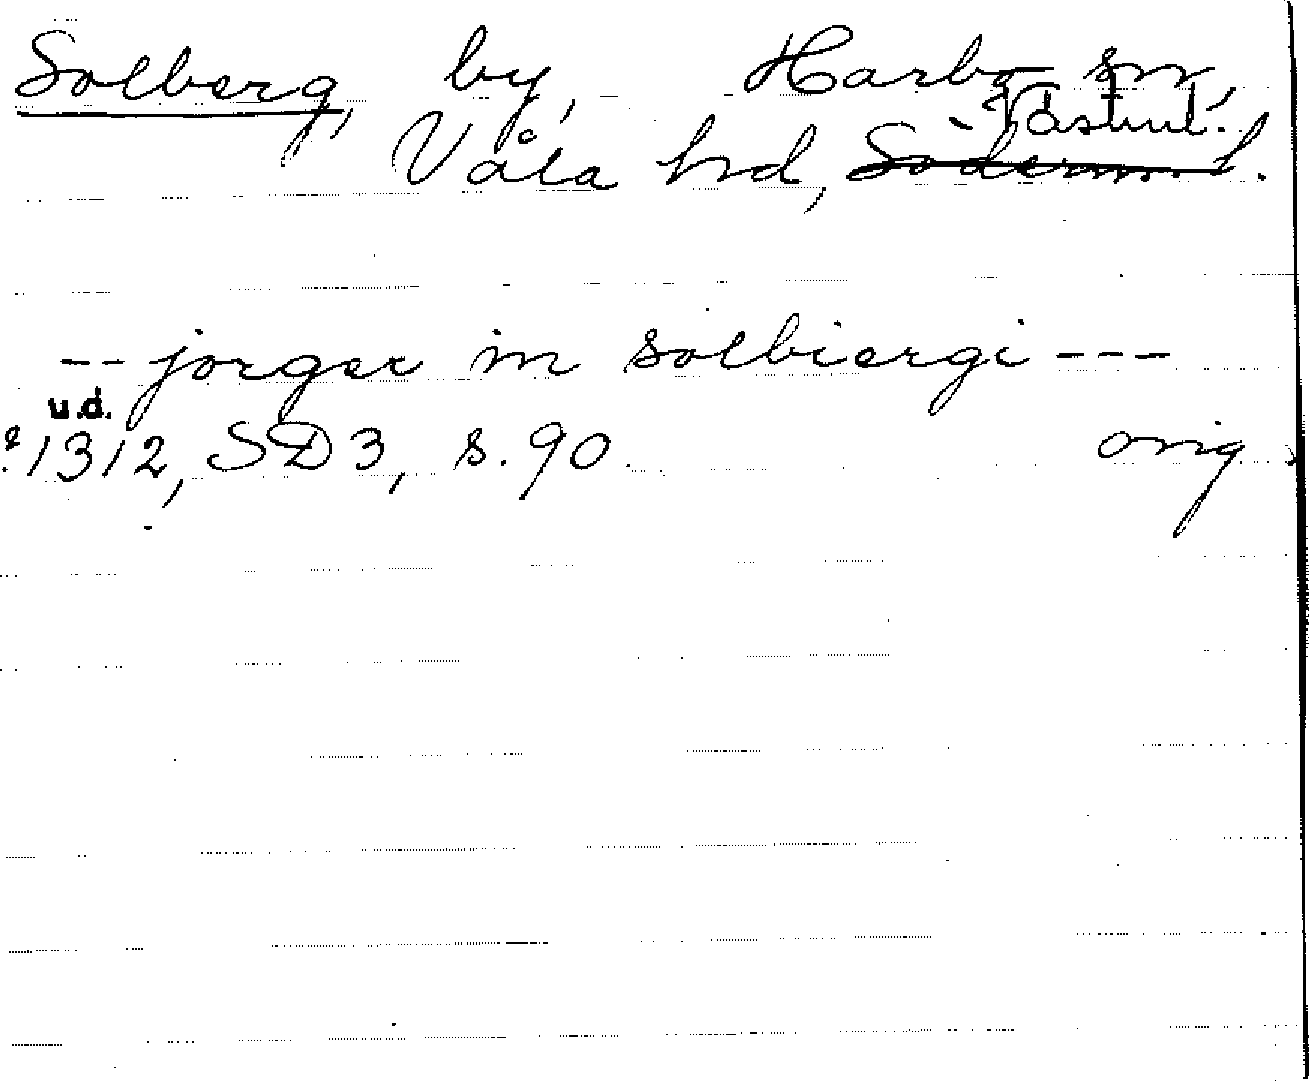 Solberg, by, Harbo sn,
Västml.
Våla hd, Söderm. l.
-- jorger in solbiergi ---
u.d.
?1312, SD3, s. 90. orig